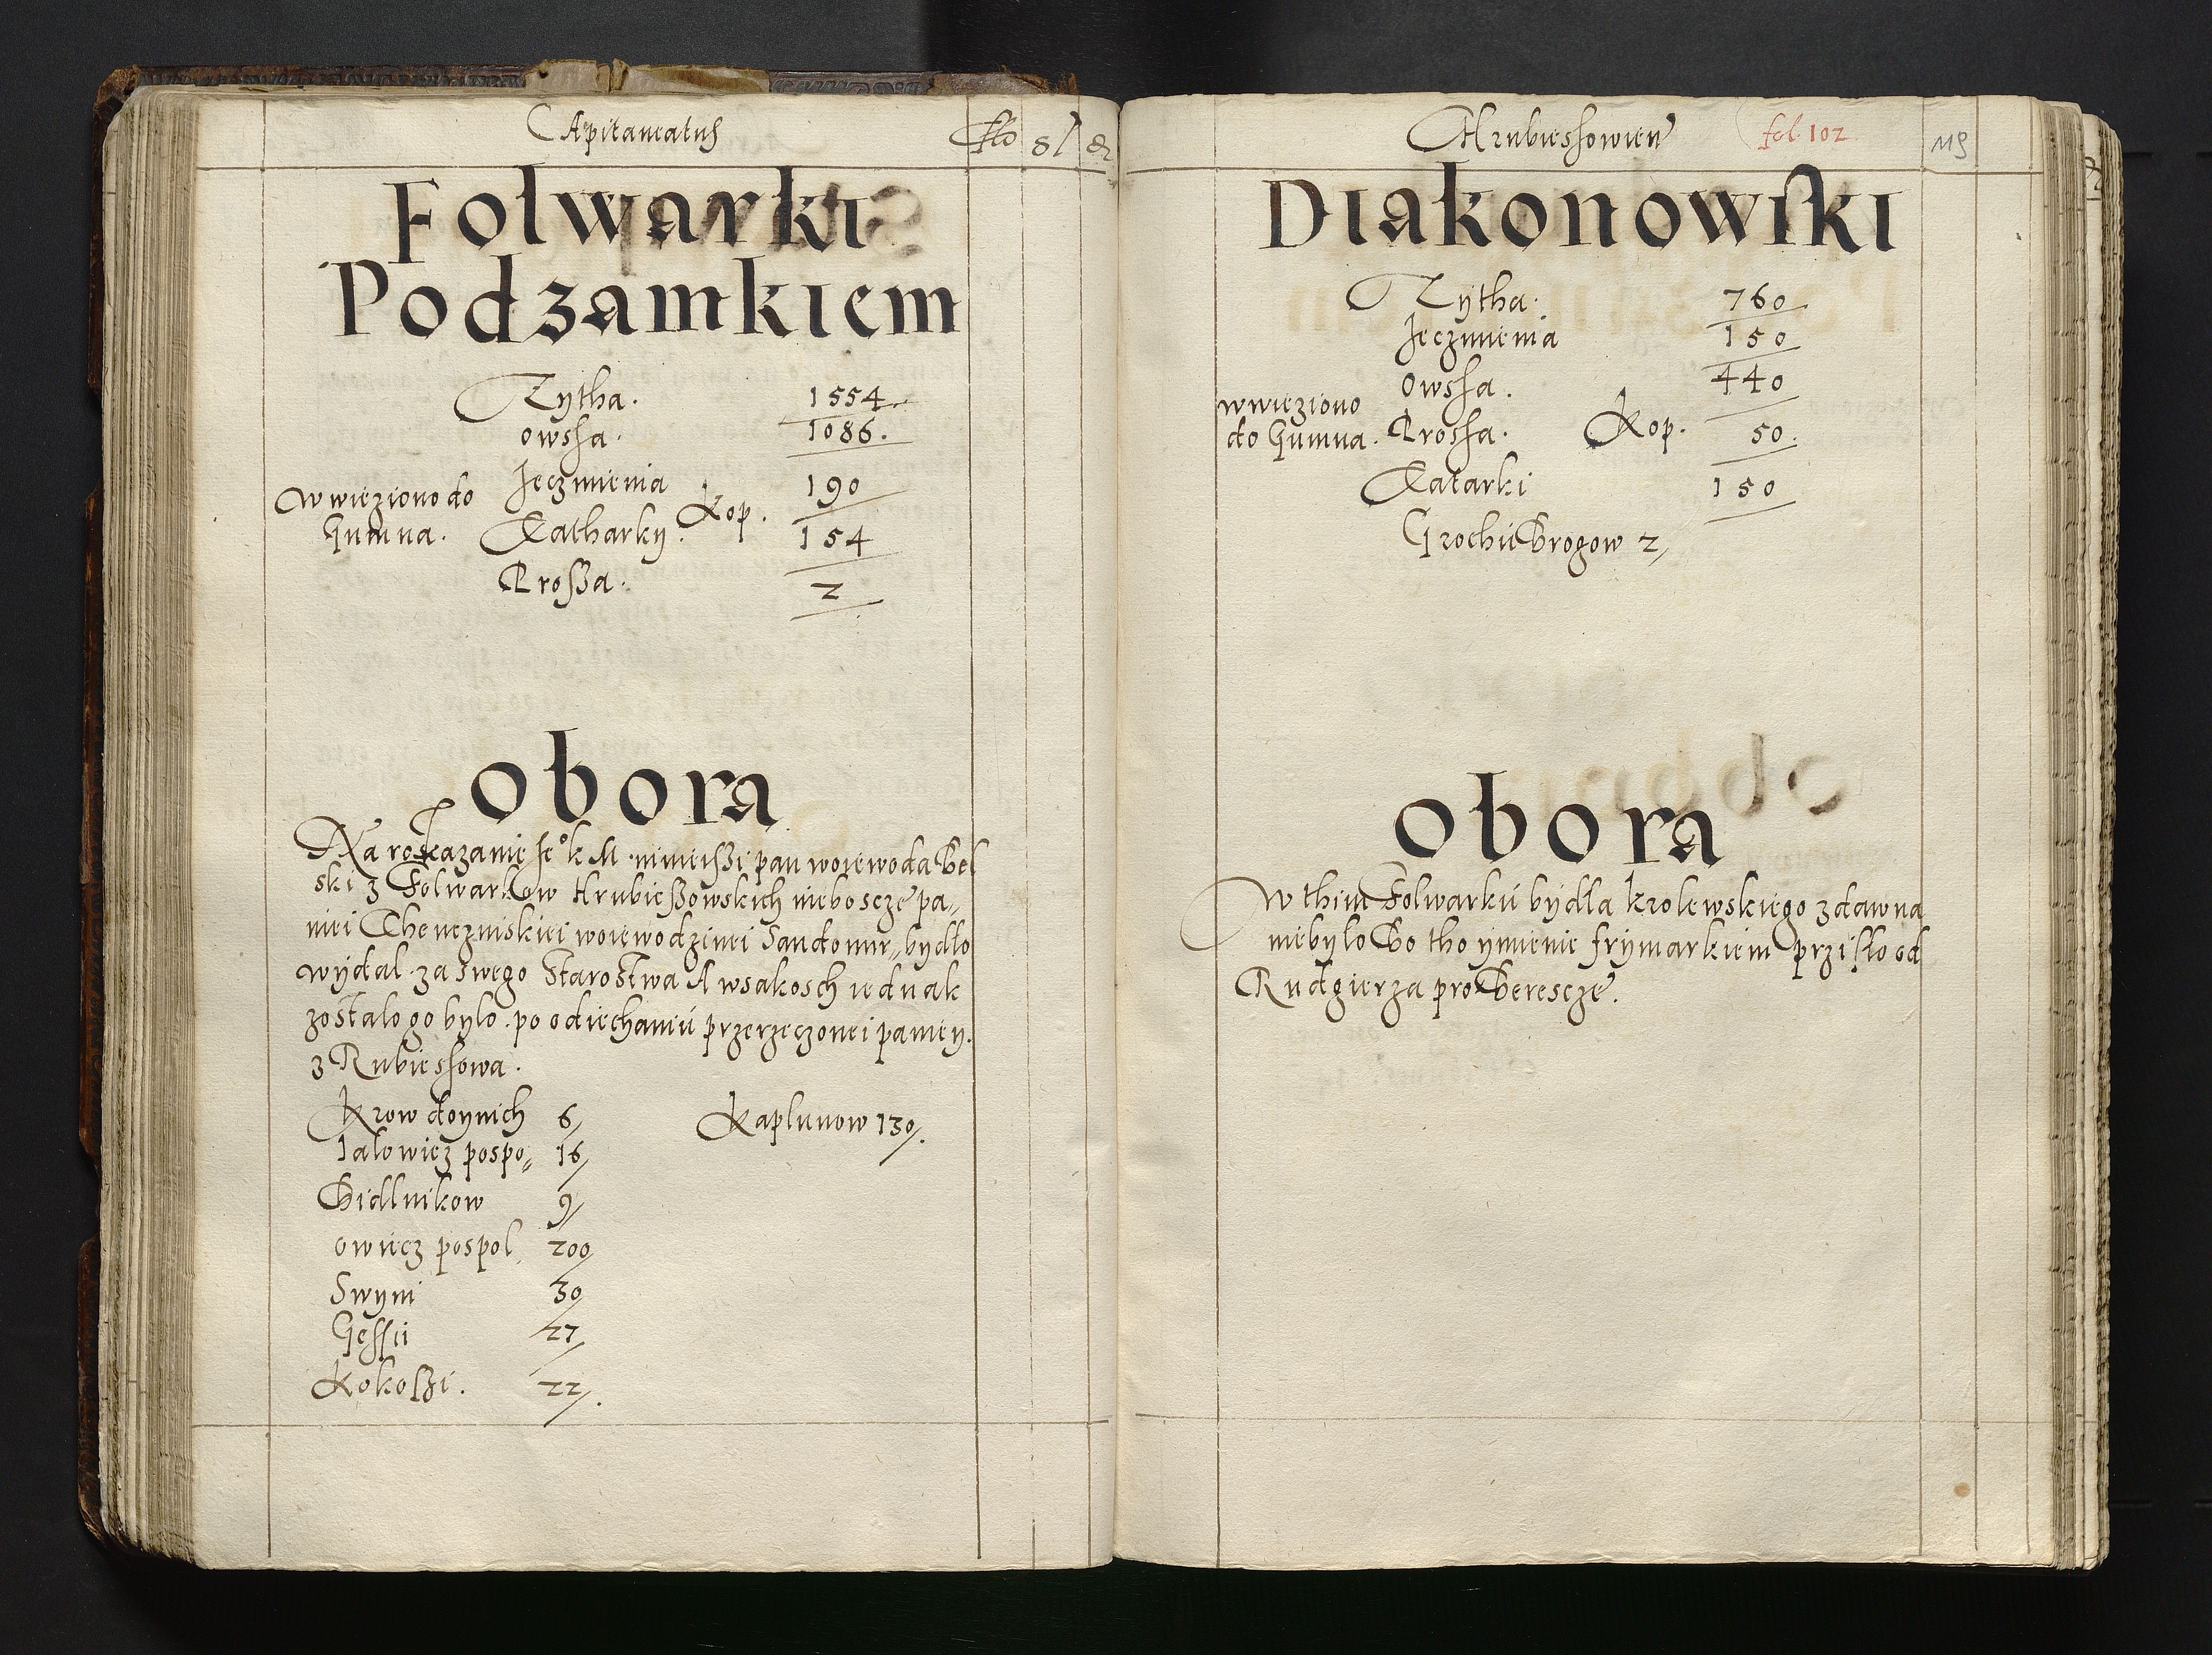 Capitaneatus
Flo
Folwarki
Podzamkiem
Zytha. 1554.
owssa. 1086.
Jeczmienia 190
Wwieziono do
Gumna. Tatharky. Kop. 154
Proßa. 2
obora
Na roskazanie je° k M. ninieißi pan woiewoda Bel
ski z Folwarkow Hrubießowskich nieboscze pa„
niei Thenczinskiei woiewodzinei Sandomir„ bydło
wydal. za swego Starostwa A wsakosch iednak
zostalo go bylo. po odiechaniu przerzeczonei paniey.
z Rubiessowa.
Krow doynich 6/ Kaplunow 130/.
Ialowicz pospo„ 16/
Bidlnikow 9/
owiecz pospol. 200
Swyni 30
Gessii 27/
Kokoßi. 22/.
Hrubiessowien
fol. 102
119
Diakonowski
Zytha. 760
Jeczmienia 150
Owssa. 440
wwieziono
do Gumna. Prossa. Kop. 50.
Tatarki 150
Grochu Brogow 2/
obora
W thim Folwarku bydła krolewskiego zdawna
niebyło Bo tho ymienie frymarkiem przisło od
Rudgierza pro Berescze.